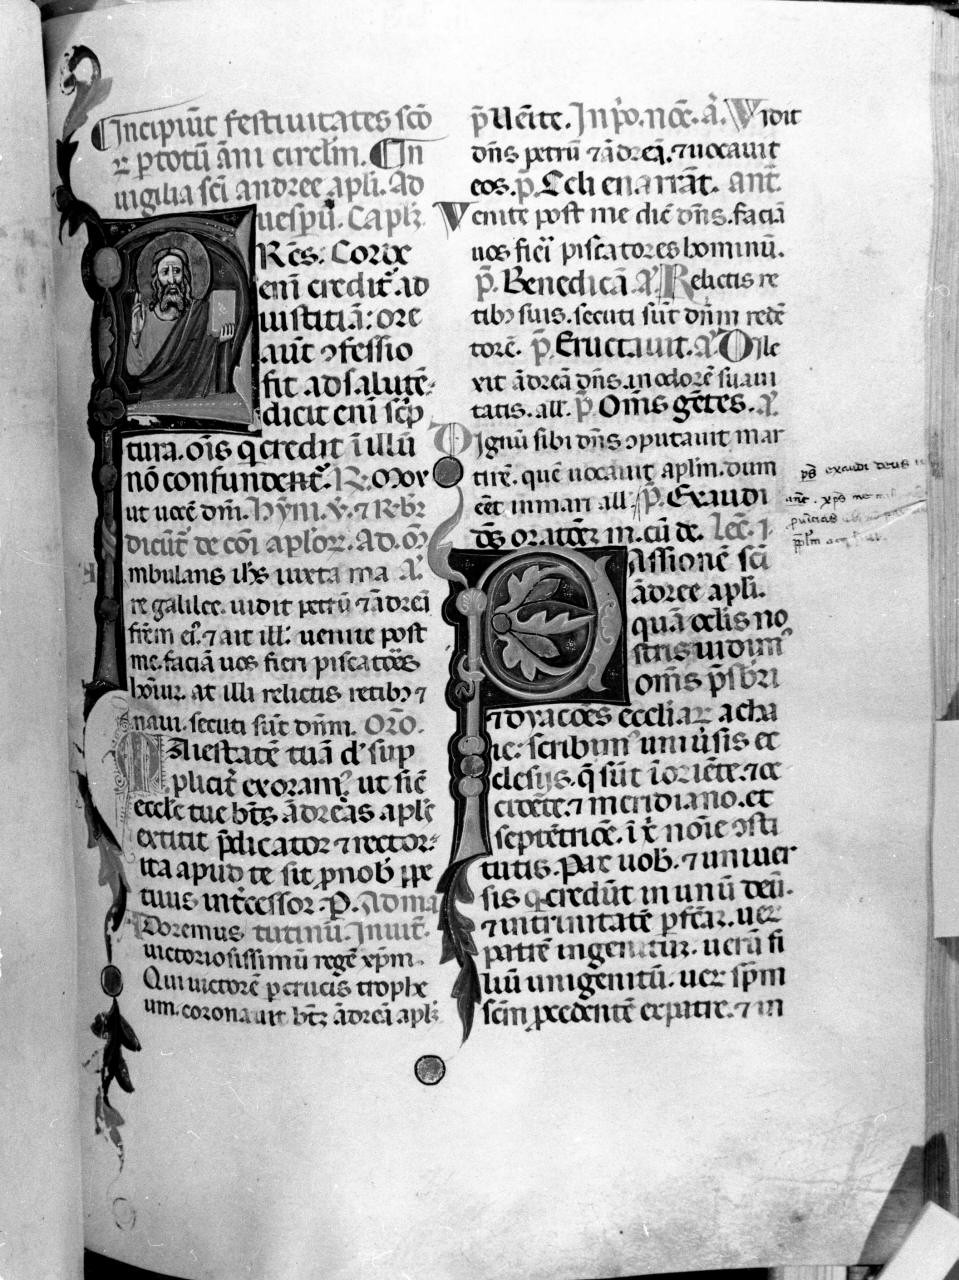 Incipiūt festiuitates sc̄ō
ꝝ ꝑ totū āni circl̄m. In
uigilia sc̄i andree apl̄i. Ad
uesꝑū. Capl̄.
FRēs: Corde
eni᷑ creditᷣ ad
iustitiā: ore
aut᷑ ꝯfessio
fit ad salutē.
dicit eni᷑ sc̄ⁱp
tura. oīs q credit ī illū
nō confundetᷣ. ℟. Mox
ut uocē dn̄i. Hym. ℣. ⁊ Rᵉbꝝ
dicūt᷑ de cōi aploꝝ. Ad. m̄.
mbulans ih̄s iuxta ma A᷑.
re galilee. uidit petrū ⁊ ādreā
fr̄em ei᷑. ⁊ ait ill᷑: uenite post
me. faciā uos fieri piscatōēs
hōīuꝝ. at illi relictis retibꝫ ⁊
naui. secuti sūt dn̄m. Orō.
Maiestatē tuā d᷑ sup
plicit᷑ exoramꝰ. ut sic᷑
eccl̄e tue bt̄s ādreas apl̄s
extitit p̄dicator ⁊ rector:
ita apud te sit ꝓ nob᷑ ꝑpe
tuus int᷑cessor. P. Ad ma
Adoremus tutinū. Inuit᷑.
uictoriosissimū regē xp̄m.
Qui uictorē ꝑ crucis trophe
um. coronauit bt̄m ādreā apl̄m
p̄ Uēīte. In pⁱo. noc̄. a᷑. Vidit
dn̄s petrū ⁊ ādreā. ⁊ uocauit
eos. p̄. Celi enarrāt. ant᷑.
Venite post me dic᷑ dn̄s. faciā
uos fieri piscatores hominū.
p̄. Benedicā. A᷑. Relictis re
tibꝫ suis. secuti sūt dn̄m redē
torē. p̄. Eructauit. A᷑. Dile
xit ādreā dn̄s. in odorē suaui
tatis. all᷑. p̄. Om̄s gētes. A᷑.
Dignū sibi dn̄s ꝯputauit mar
tirē. quē uocauit apl̄m. dum
eēt in mari all᷑. p̄. Exaudi
dē᷑s oratōēꝫ m. cū de. Lec̄. i.
Passionē sc̄i
ādree apl̄i.
quā oclis no
stris uidimꝰ
om̄s p̄sbr̄i
⁊ dyacōēs eccl̄iaꝝ acha
ie: scribimꝰ uniu᷑sis ec
clesijs. q᷑ sūt ī oriēte. ⁊ oc
cidēte. ⁊ meridiano. et
septētrioē. ī xⁱ noīe ꝯsti
tutis. Pax uob᷑. ⁊ uniuer
sis q credūt in unū deū.
⁊ in trinitatē ꝑfc̄aꝫ. ueꝝ
patrē ingenitū. uerū fi
liū unigenitū. ueꝝ sp̄m
sc̄m ꝓcedentē ex patre. ⁊ in
ps̄ exaudi deus
ant᷑. xp̄s me